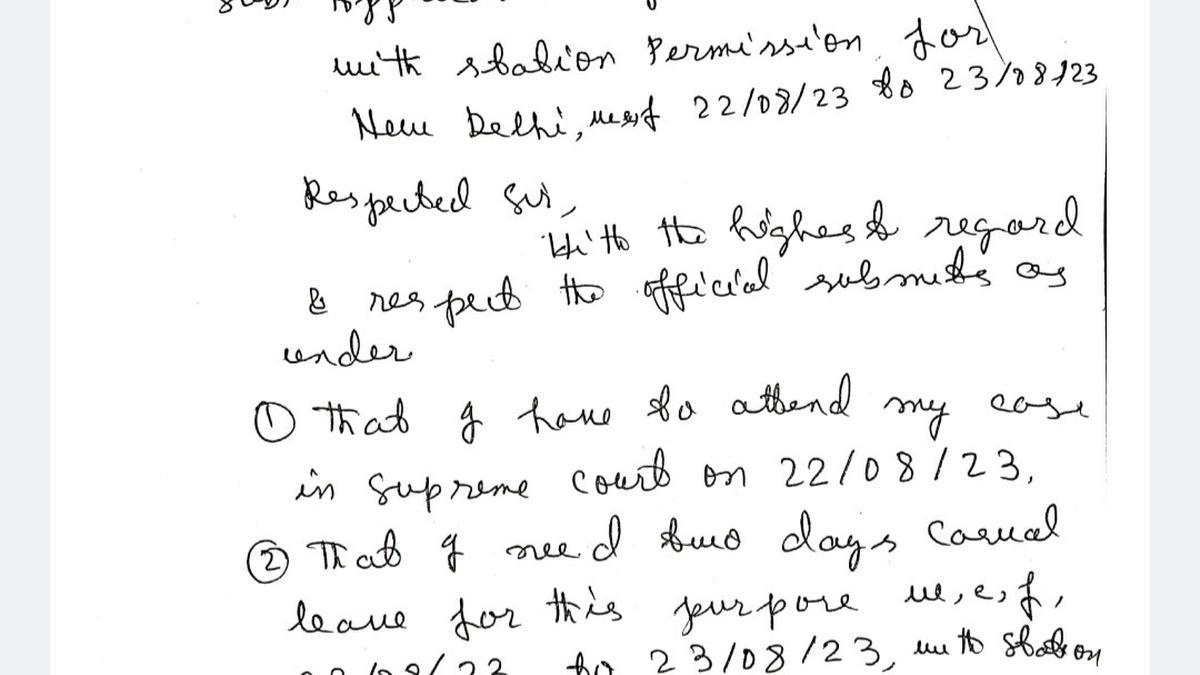 with station Permission for
New Delhi, w.e.f 22/08/23 to 23/08/23
Respected Sir,
With the highest regard
& respect the official submits as
under
① That I have to attend my case
in Supreme court on 22/08/23,
② That I need two days Casual
leave for this purpose w,e,f,
to 23/08/23, with station